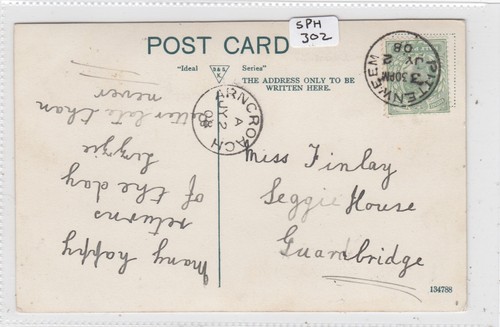 SPH
302
POST CARD
"Ideal Series"
D&S
K
THE ADDRESS ONLY TO BE
WRITTEN HERE.
PITTENWEEM
3 30PM
JY 2
08
ARNCROACH
A
JY 2
08
Miss Finlay
Seggie House
Guardbridge
many happy
returns
of the day
Lizzie
better late than
never
134788